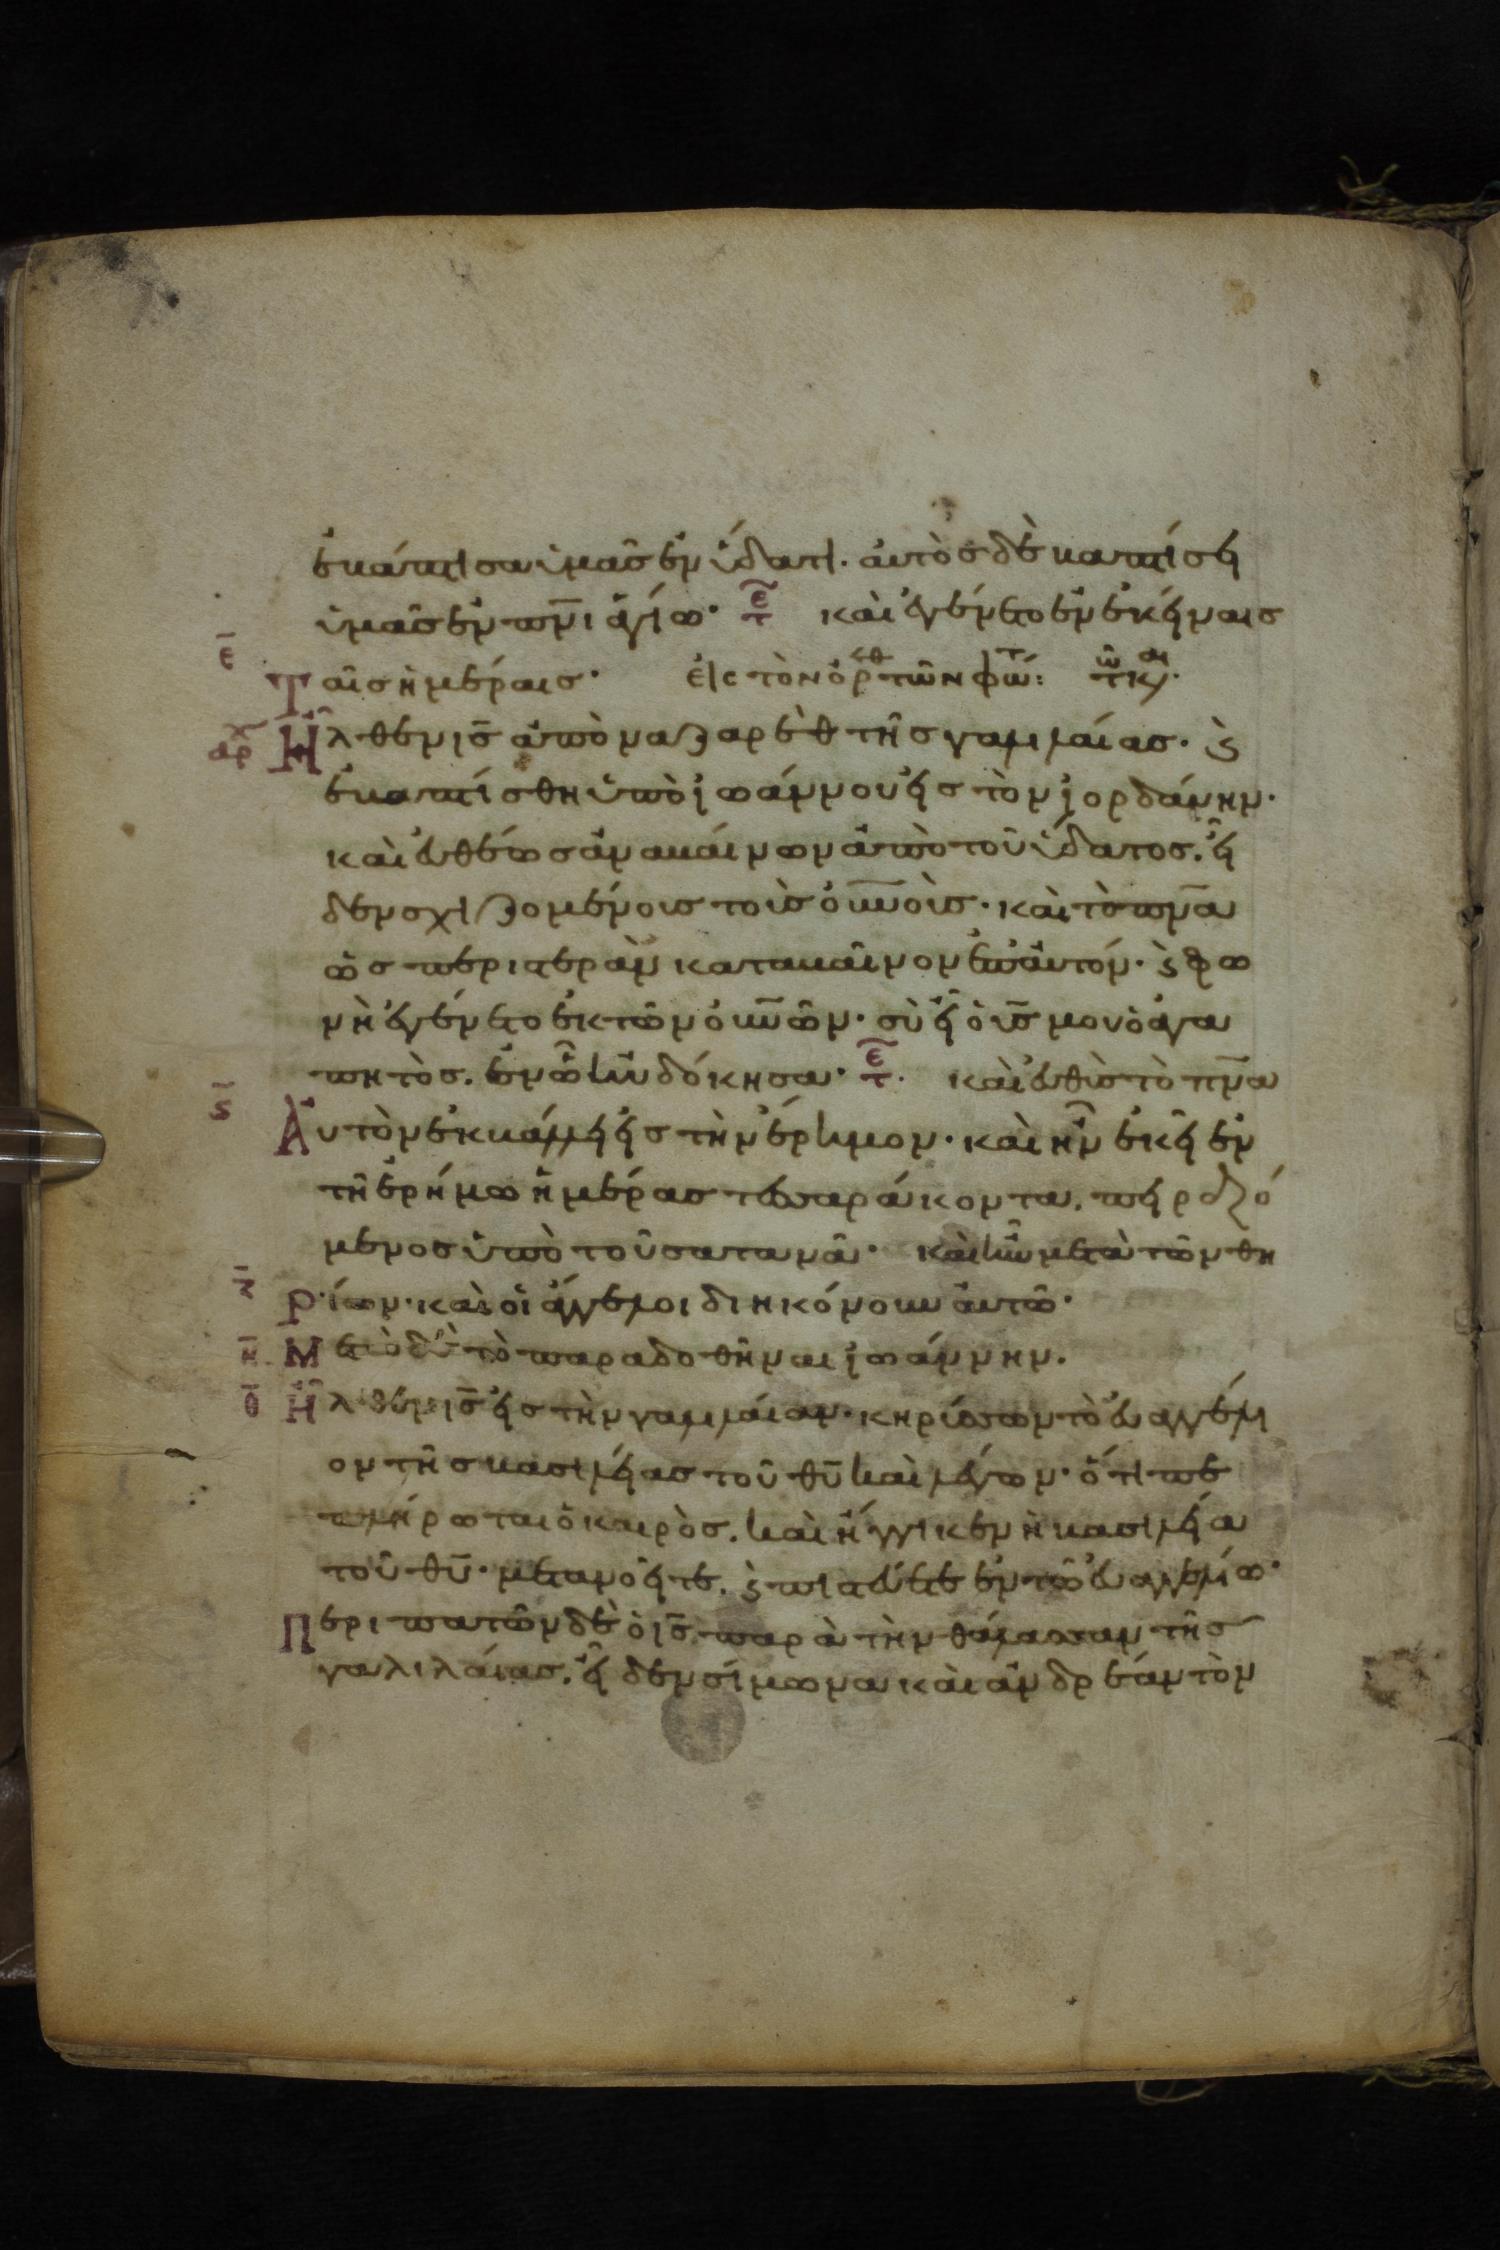 ἐβάπτισα ὑμᾶς ἐν ὕδατι· αὐτὸς δὲ βαπτίσει
ὑμᾶς ἐν πν̅ι ἁγίω· ε̅τ καὶ ἐγένετο ἐν ἐκείναις
ε̅ Ταῖς ἡμέραις· εἰς τὸν ὄρθ τῶν φώτ:
αρχ Ἦλθεν ις̅ ἀπὸ ναζαρὲθ τῆς γαλιλαίας· ϗ
ἐβαπτίσθη ὑπὸ ἰωάννου εἰς τὸν ἰορδάνην·
καὶ εὐθέως ἀναβαίνων ἀπὸ τοῦ ὕδατος. εἶ
δεν σχιζομένους τοὺς οὐν̅οὺς· καὶ τὸ πν̅α
ὡς περιστερὰν καταβαῖνον ἐπ' αὐτόν· ϗ φω
νὴ ἐγένετο ἐκ τῶν οὐν̅ῶν· σὺ εἶ ὁ υς̅ μου ὁ ἀγα
πητὸς. ἐν ᾧ ηὐδόκησα· ε̅τ· καὶ εὐθὺς τὸ πν̅α
ς̅ Αὐτὸν ἐκβάλλει εἰς τὴν ἔρημον· καὶ ἦν ἐκεῖ ἐν
τῆ ἐρήμω ἡμέρας τεσσαράκοντα. πειραζό
μενος ὑπὸ τοῦ σατανᾶ· καὶ ἦν μετὰ τῶν θη
ζ̅ Ρίων· καὶ οἱ ἄγγελοι διηκόνουν αὐτῶ·
η̅ Μετὰ δὲ τὸ παραδοθῆναι ἰωάννην.
θ̅ Ἦλθεν ις̅ εἰς τὴν γαλιλαίαν· κηρύσσων τὸ εὐαγγέλι
ον τῆς βασιλείας τοῦ θυ̅ καὶ λέγων· ὅτι πε
πλήρωται ὁ καιρὸς. καὶ ἤγγικεν ἡ βασιλεία
τοῦ θυ̅· μετανοεῖτε. ϗ πιστεύετε ἐν τῶ εὐαγγελίω·
Περιπατῶν δὲ ὁ ις̅ παρὰ τὴν θάλασσαν τῆς
γαλιλαίας. εἶδεν σίμωνα καὶ ἀνδρέαν τὸν